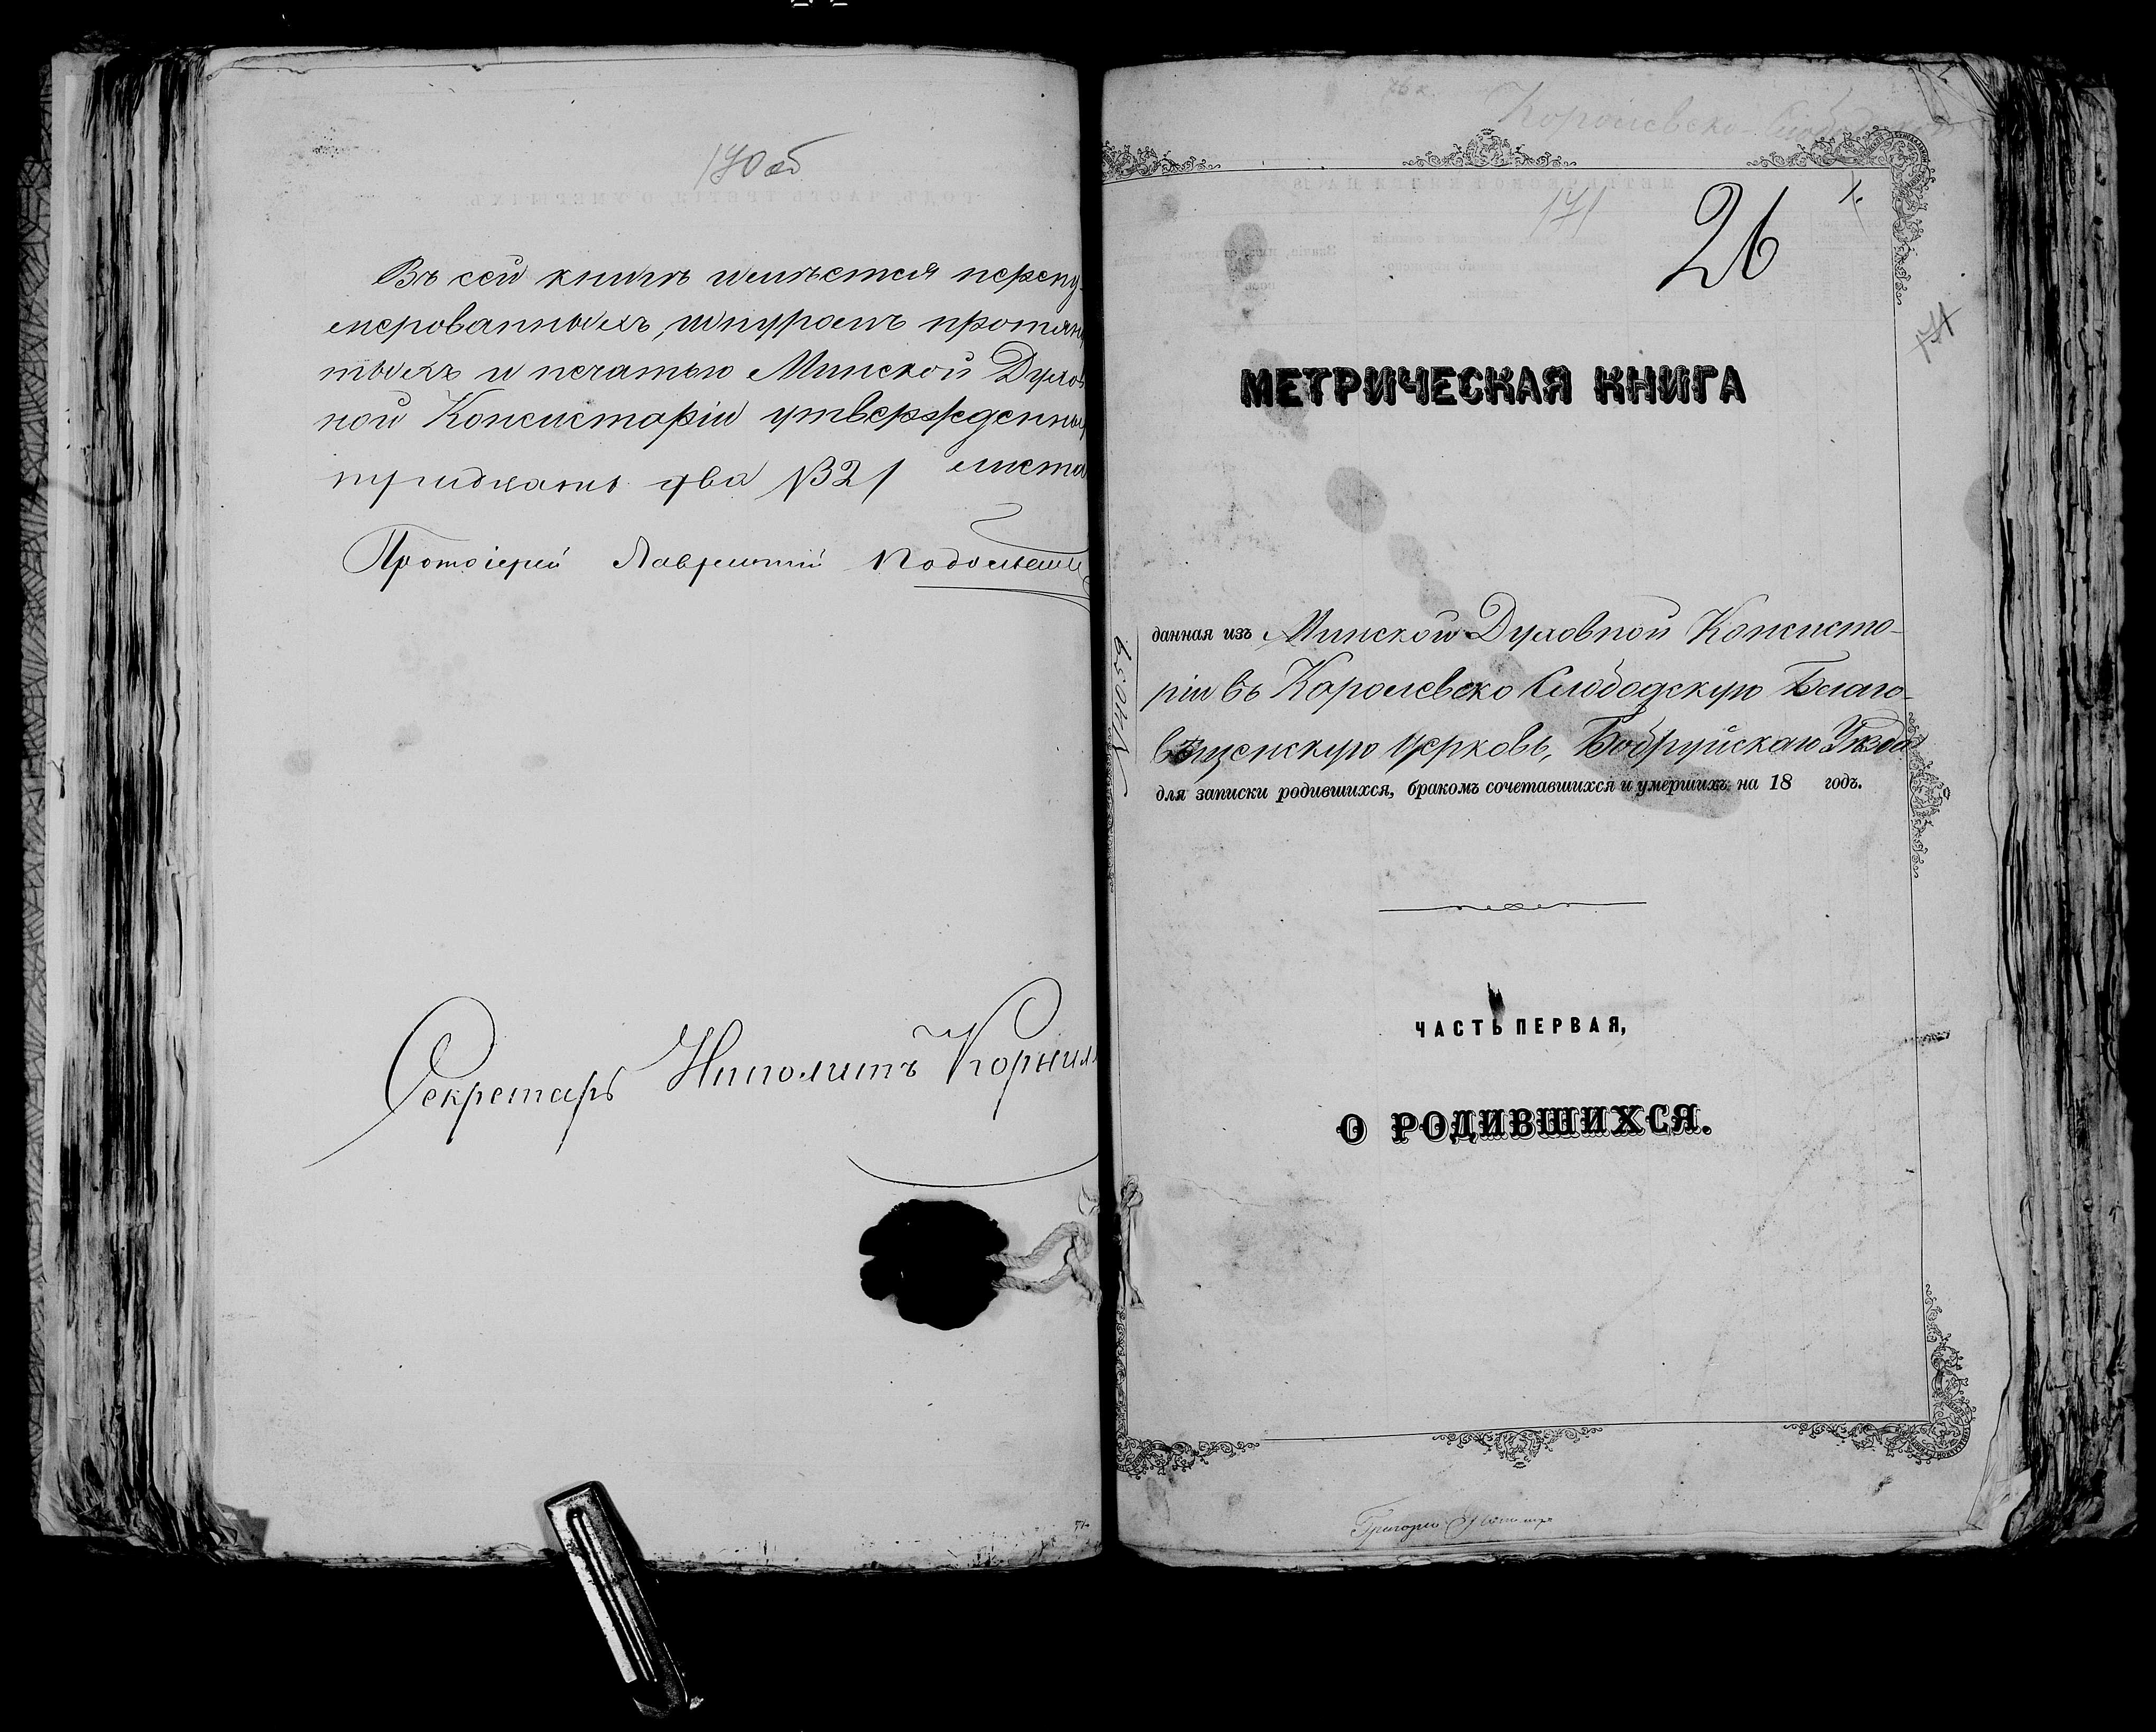 170 об
Въ сей книгѣ имѣется перену-
мерованныхъ, шнуромъ протяну
тыхъ и печатью Минской Духов
ной Консисторіи утвержденны
тридцать два /32/ листа
Протоіерей Лаврентій
Секретарь Ипполитъ Корнил
Королевско Слободской
171
26
171
МЕТРИЧЕСКАЯ КНИГА
данная изъ Минской Духовной Консисто-
ріи въ Королевско Слободскую Благо-
вѣщенскую церковь, Бобруйскаго Уѣзда
для записки родившихся, бракомъ сочетавшихся и умершихъ на 18 годъ.
№11059
ЧАСТЬ ПЕРВАЯ,
О РОДИВШИХСЯ.
Григорій